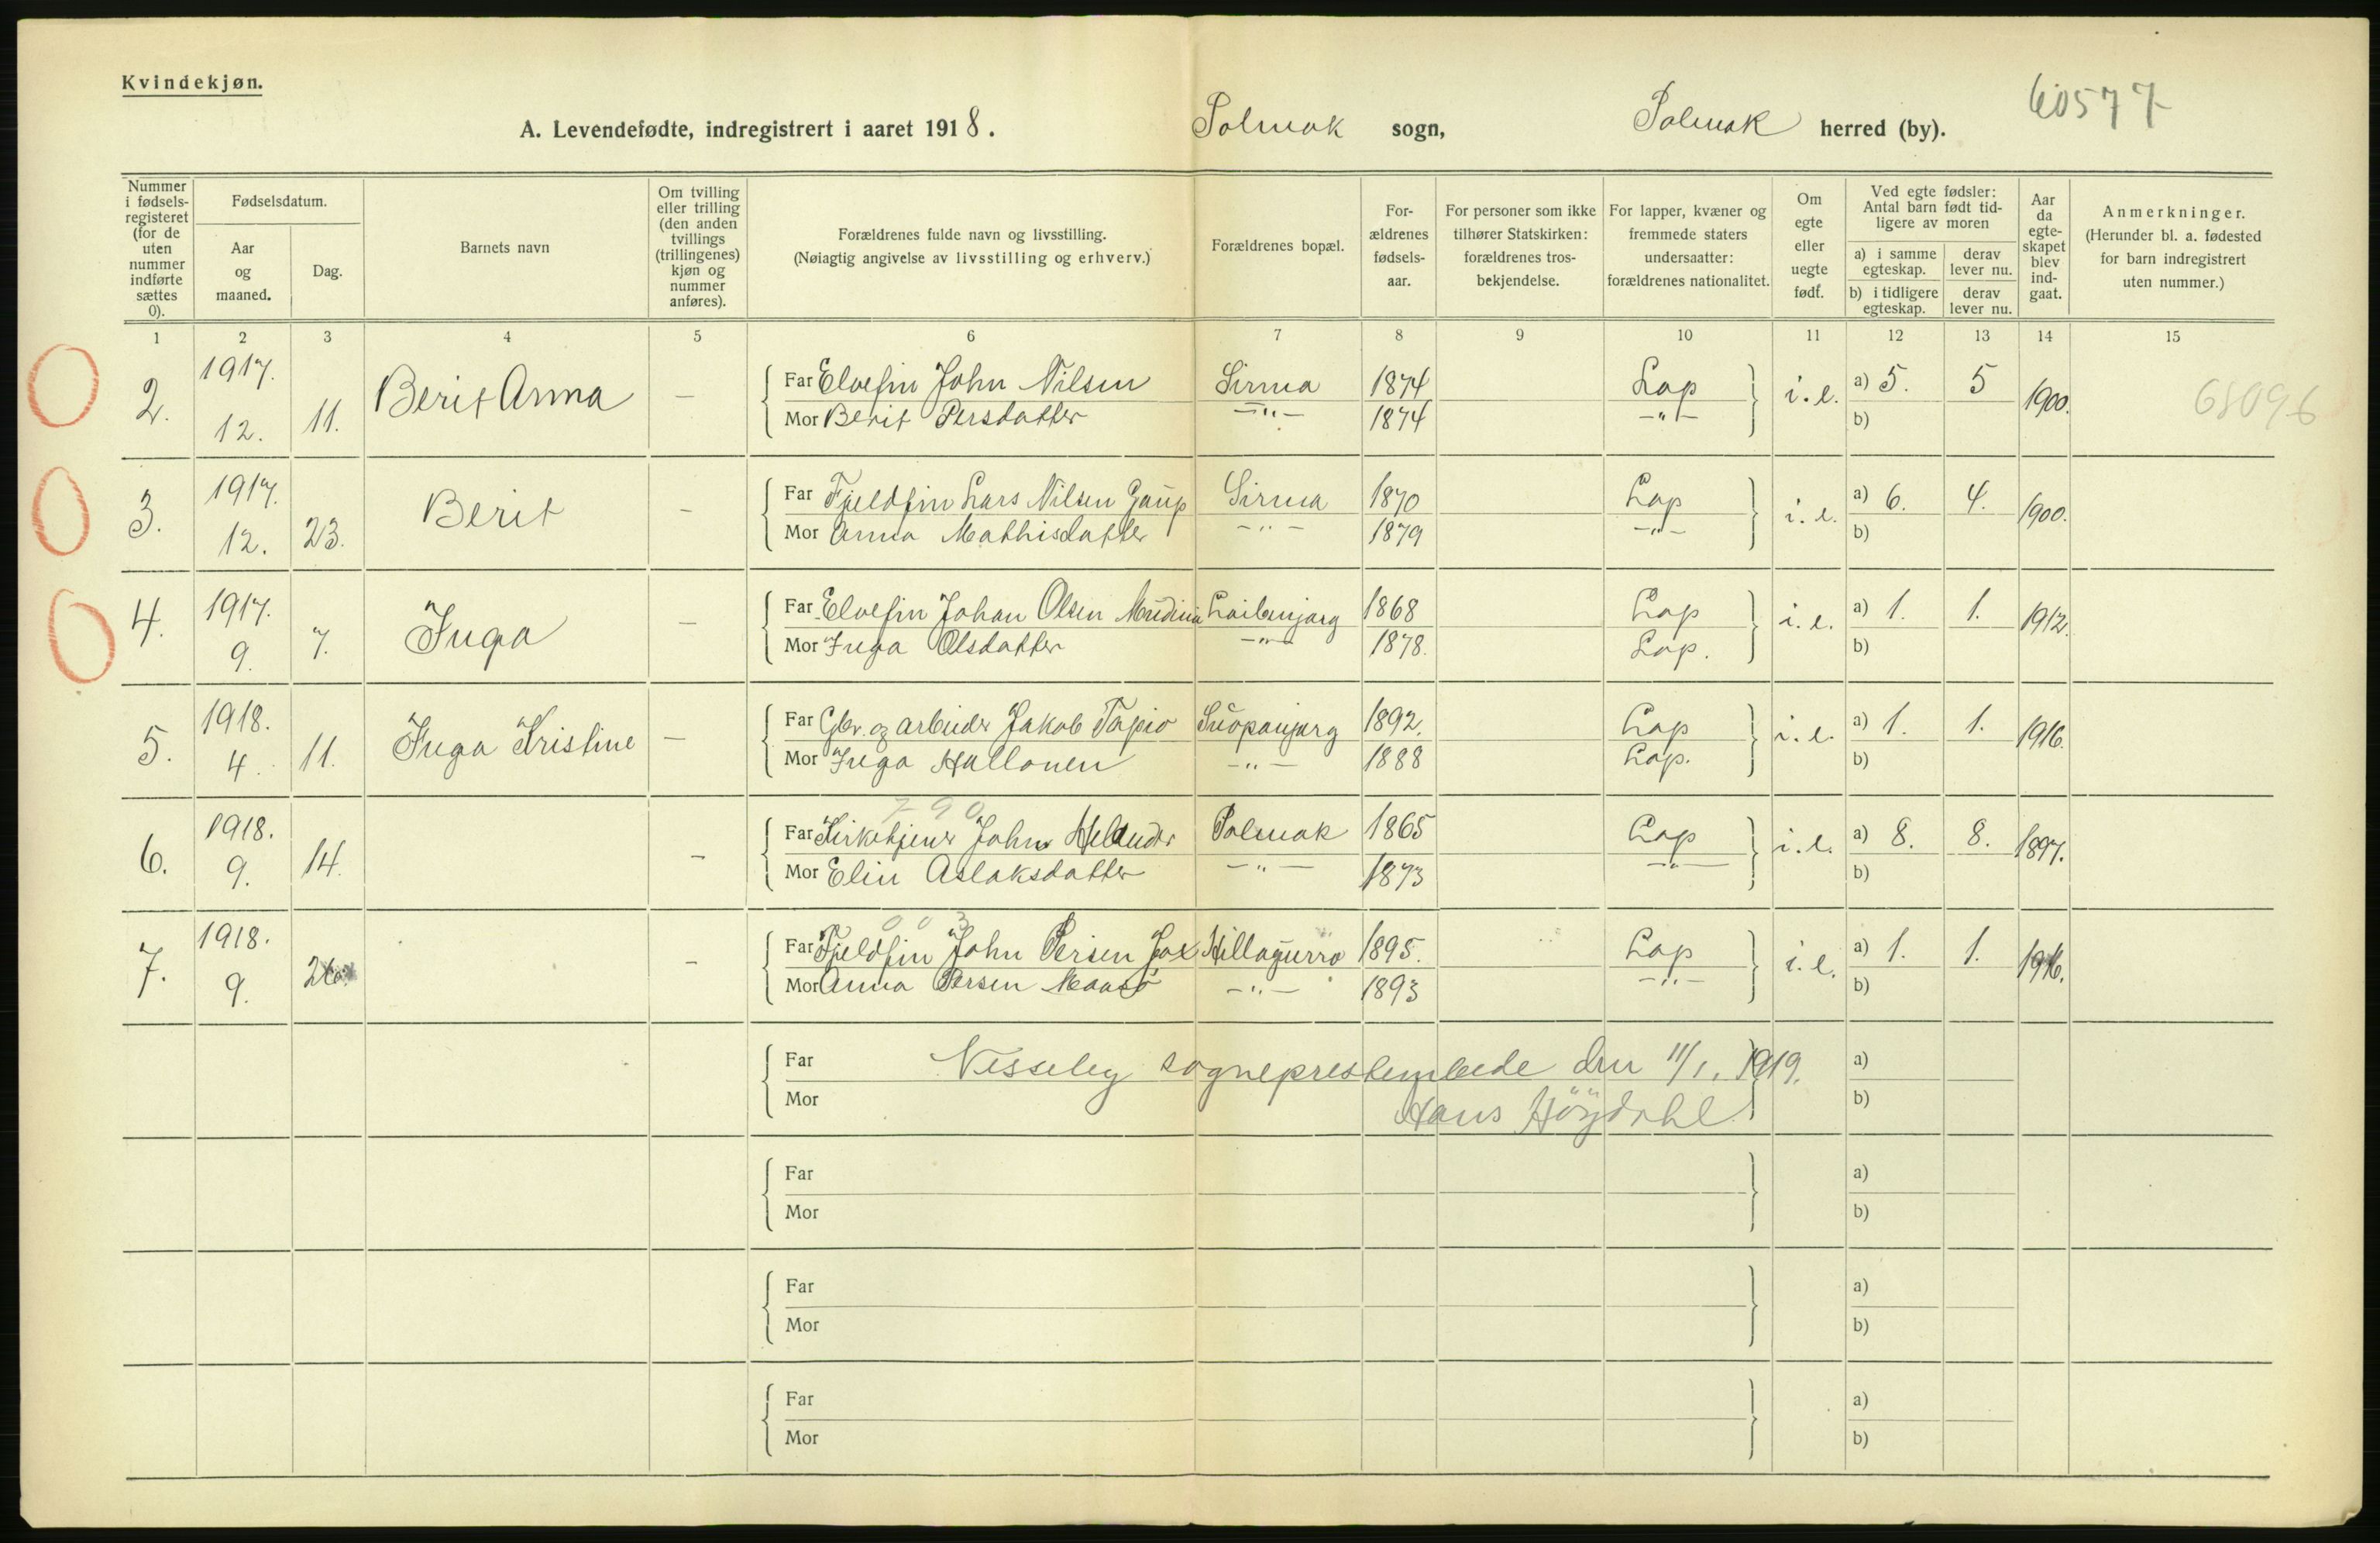 Kvindekjøn.
A. Levendefødte, indregistrert i aaret 1918. Polmak sogn, Polmak herred (by). 60577
Nummer i fødselsregisteret (for de uten nummer indførte sættes 0).
Fødselsdatum.
Aar og maaned.
Dag.
Barnets navn
Om tvilling eller trilling (den anden tvillings (trillingenes) kjøn og nummer anføres).
Forældrenes fulde navn og livsstilling.
(Nøiagtig angivelse av livsstilling og erhverv.)
Forældrenes bopæl.
Forældrenes fødselsaar.
For personer som ikke tilhører Statskirken: forældrenes trosbekjendelse.
For lapper, kvæner og fremmede staters undersaatter: forældrenes nationalitet.
Om egte eller uegte født.
Ved egte fødsler: Antal barn født tidligere av moren
a) i samme egteskap. derav lever nu.
b) i tidligere egteskap. derav lever nu.
Aar da egteskapet blev indgaat.
Anmerkninger.
(Herunder bl. a. fødested for barn indregistrert uten nummer.)
1 2 3 4 5 6 7 8 9 10 11 12 13 14 15
0 2. 1917. 12. 11. Berit Anna — Far Elvefin John Nilsen Sirma 1874 Lap i.e. a) 5. 5 1900. 68096
Mor Berit Persdatter —"— 1874 —"— b)
0 3. 1917. 12. 23. Berit — Far Fjeldfin Lars Nilsen Gaup Sirma 1870 Lap i.e. a) 6. 4. 1900.
Mor Anna Mathisdatter —"— 1879 —"— b)
0 4. 1917. 9. 7. Inga — Far Elvefin Johan Olsen 1868 Lap i.e. a) 1. 1. 1912.
Mor Inga Olsdatter —"— 1878. Lap. b)
5. 1918. 4. 11. Inga Kristine — Far Gbr. og arbeider Jakob Tapio 1892. Lap i.e. a) 1. 1. 1916.
Mor Inga Hallonen —"— 1888 Lap. b)
790
6. 1918. 9. 14. — Far Kirketjener John Helander Polmak 1865 Lap i.e. a) 8. 8. 1897.
Mor Elin Aslaksdatter —"— 1873 —"— b)
003
7. 1918. 9. — Far Fjeldfin John Persen Hillagurra 1895. Lap i.e. a) 1. 1. 1916.
Mor Anna Persen Maasø —"— 1893 —"— b)
Far Nesseby sogneprestembede den 11/1. 1919. a)
Mor Hans Höydahl b)
Far a)
Mor b)
Far a)
Mor b)
Far a)
Mor b)